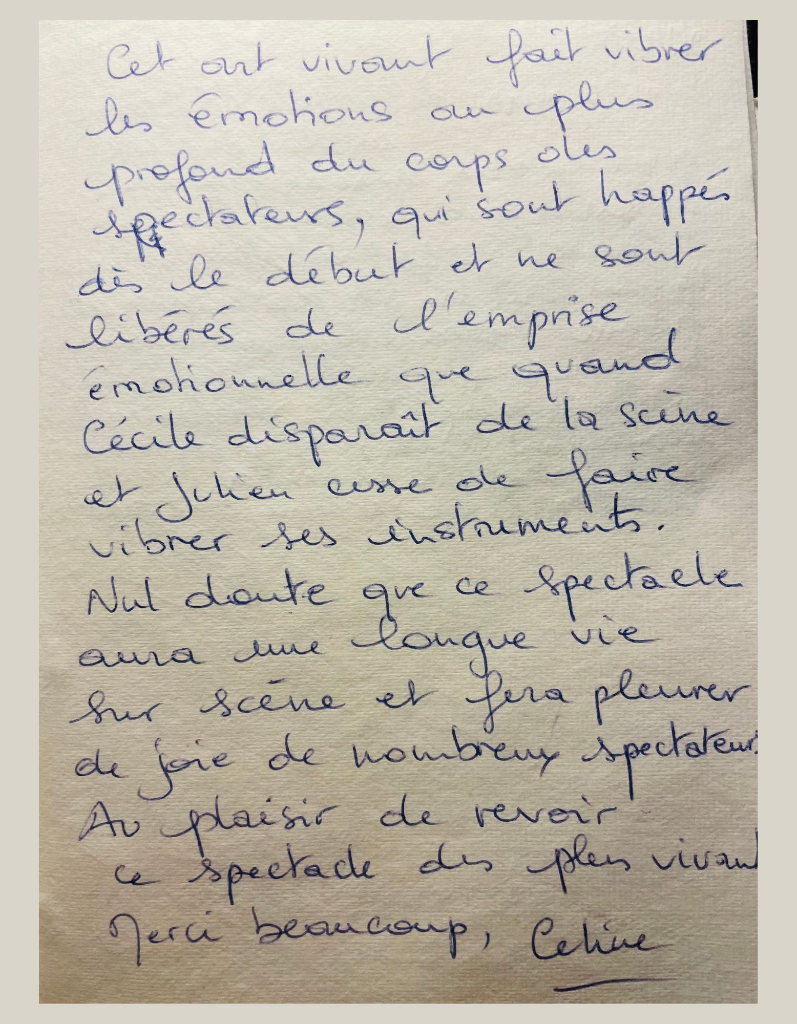 Cet art vivant fait vibrer
les émotions au plus
profond du corps des
spectateurs, qui sont happés
dès le début et ne sont
libérés de l'emprise
émotionnelle que quand
Cécile disparaît de la scène
et Julien cesse de faire
vibrer ses instruments.
Nul doute que ce spectacle
aura une longue vie
sur scène et fera pleurer
de joie de nombreux spectateurs
Au plaisir de revoir
ce spectacle des plus vivant
Merci beaucoup, Celine